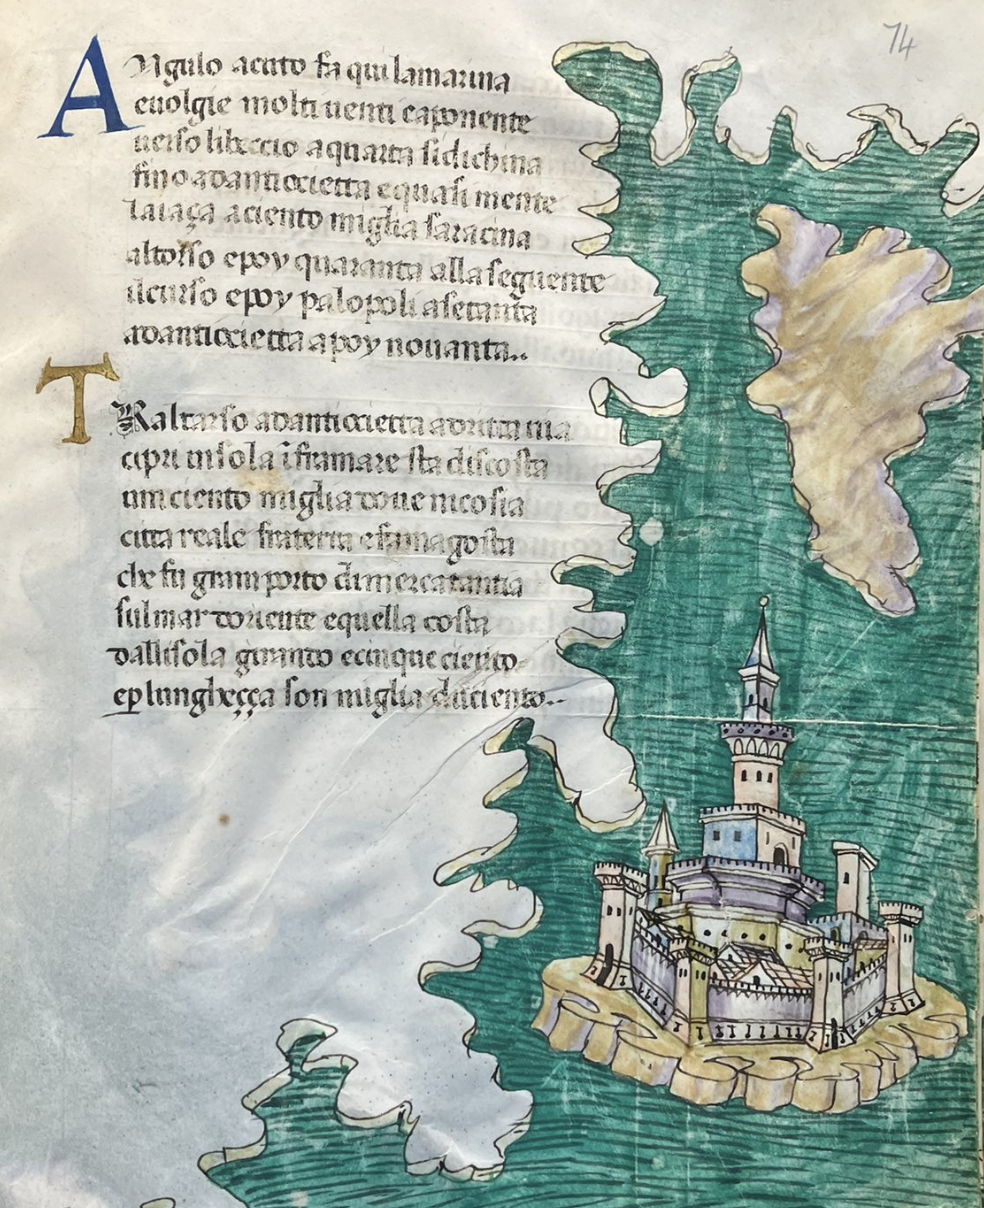 74
ANgulo acuto fa qui lamarina
euolgie molti uenti eaponente
uerso libeccio aquarta sidichina
fino adanticcietta equasi mente
laiaça aciento miglia saracina
altorso epoy quaranta alla seguente
ilcurso epoy palopoli asetanta
adanticcietta apoy nouanta..
TRaltarso adanticcietta adritta uia
cipri insola ĩframare sta discosta
um ciento miglia doue nicosia
citta reale fraterra efamagosta
che fu gram porto di mercatantia
sul mar doriente equella costa
dallisola girando ecinque ciento
eꝑ lungheçça son miglia duciento..